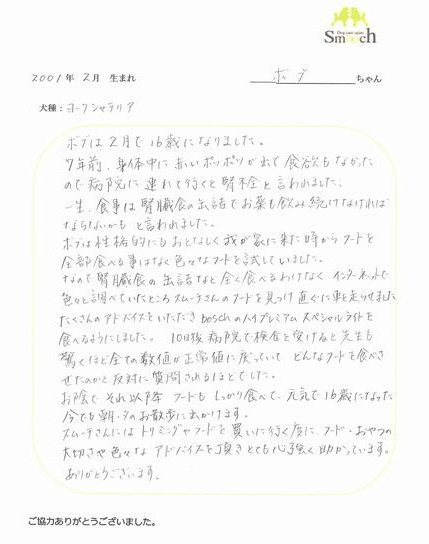 Dog care salon
Smooch
2001年 2月 生まれ
ボブ ちゃん
犬種: ヨークシャテリア
ボブは2月で16歳になりました。
7年前、身体中に赤いポツポツが出て食欲もなかった
ので病院に連れて行くと腎不全と言われました。
一生、食事は腎臓食の缶詰でお薬も飲み続けなければ
ならないかもと言われました。
ボブは性格的にもおとなしく我が家に来た時からフードを
全部食べる事はなく色々なフードを試していました。
なので腎臓食の缶詰など全く食べるわけなく、インターネットで
色々と調べていたところスムーチさんのフードを見つけ直ぐに車を走らせました
たくさんのアドバイスをいただきboschのハイプレミアムスペシャルライトを
食べるようにしました。10日後病院で検査を受けると先生も
驚くほど全ての数値が正常値に戻っていてどんなフードを食べさ
せたのかと反対に質問されるほどでした。
お陰でそれ以降フードもしっかり食べて、元気で16歳になった
今でも朝・夕のお散歩に出かけます。
スムーチさんにはトリミングやフードを買いに行く度に、フード・おやつの
大切さや色々なアドバイスを頂きとても心強く助かっています。
ありがとうございます。
ご協力ありがとうございました。